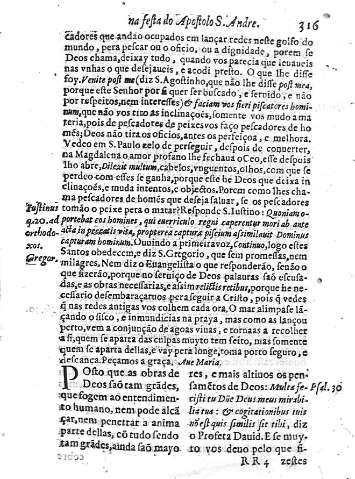 na festa do Apostolo S. Andre. 316
cadores que andão ocupados em lançar redes neste golfo do
mundo, pera pescar ou o oficio, ou a dignidade, porem se
Deos chama, deixay tudo, quando vos parecia que leuaueis
nas vnhas o que desejaueis, e acodi presto. O que lhe disse
foy. Venite post me (diz S. Agostinho, que não lhe disse post mea,
porque este Senhor por si quer ser buscado, e seruido, e não
por respeitos, nem interesses) & faciam vos fieri piscatores homi-
num, que não vos tiro as inclinaçoẽs, somente vos mudo a ma
teria, pois de pescadores de peixes vos faço pescadores de ho
mẽs; Deos não tira os oficios, antes os perfeiçoa, e melhora.
Vedeo em S. Paulo zelo de perseguir, despois de conuerter,
na Magdalena o amor profano lhe fechaua o Ceo, esse despois
lho abre, Dilexit multum, cabelos, vnguentos, olhos, com que se
perdeo com esses se ganha, porque esse he Deos que deixa in
clinaçoẽs, e muda intentos, e objectos. Porem como lhes cha
ma pescadores de homẽs que deseja saluar, se os pescadores
Iustinus tomão o peixe pera o matar? Responde S. Iustino: Quoniam o-
q. 20. ad portebat eos homines, qui euerriculo regni caperentur mori ab ante
orthodo- acta in peccatis vita, propterea captura piscium assimilauit Dominus
xos. capturam hominum. Ouuindo a primeira voz, continuo, logo estes
Gregor. Santos obedecem, e diz S. Gregorio, que sem promessas, nem
milagres. Nem diz o Euangelista o que responderão, senão o
que fizerão, porque no seruiço de Deos palauras saõ escusa-
das, e as obras necessarias, e assim relictis retibus, porque he ne-
cessario desembaraçarnos pera seguir a Cristo, pois q̃ vedes
q̃ nas redes antigas vos colhem cada ora. O mar alimpase lã-
çando o sisco, e immundicias na praya, mas como as lançou
perto, vem a conjunção de agoas viuas, e tornaas a recolher
a si, quem se aparta das culpas muyto tem feito, mas somente
quem se aparta dellas, e vay pera longe, toma porto seguro, e
descança. Peçamos a graça, Aue Maria.
POsto que as obras de
Deos saõ tam grãdes,
que fogem ao entendimen-
to humano, nem pode alcã
çar, nem penetrar a anima
parte dellas, cõ tudo sendo
tam grãdes, ainda saõ mayo
res, e mais altiuos os pen-
samẽtos de Deos: Multa fe- Psal. 30
cisti tu Dñe Deus meus mirabi-
lia tua: & cogitationibus tuis
nõ est quis similis sit tibi, diz
o Profeta Dauid. E se muy-
to vos deuo pelo que fi-
RR 4 zestes